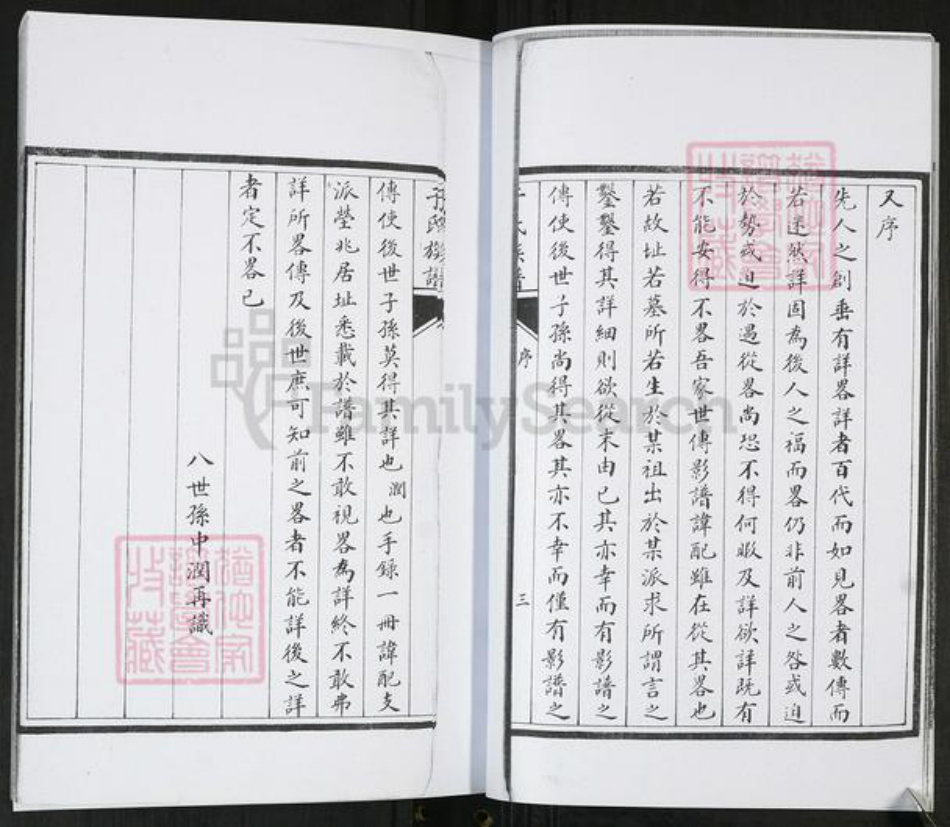 又序
先人之創垂有詳畧詳者百代而如見畧者數傳而
若迷然詳固為後人之福而畧仍非前人之咎或迫
於勢或迫於過從畧尚恐不得何暇及詳欲詳既有
不能安得不畧吾家世傳影譜諱配雖在從其畧也
若故址若墓所若生於某祖出於某派求所謂言之
鑿鑿得其詳細則欲從末由已其亦幸而有影譜之
傳使後世子孫尚得其畧其亦不幸而僅有影譜之
氏族譜
序
三
族譜
傳使後世子孫莫得其詳也潤也手錄一冊諱配支
派塋兆居址悉載於譜雖不敢視畧為詳終不敢弗
詳所畧傳及後世庶可知前之畧者不能詳後之詳
者定不畧已
八世孫中潤再識
FamilySearch